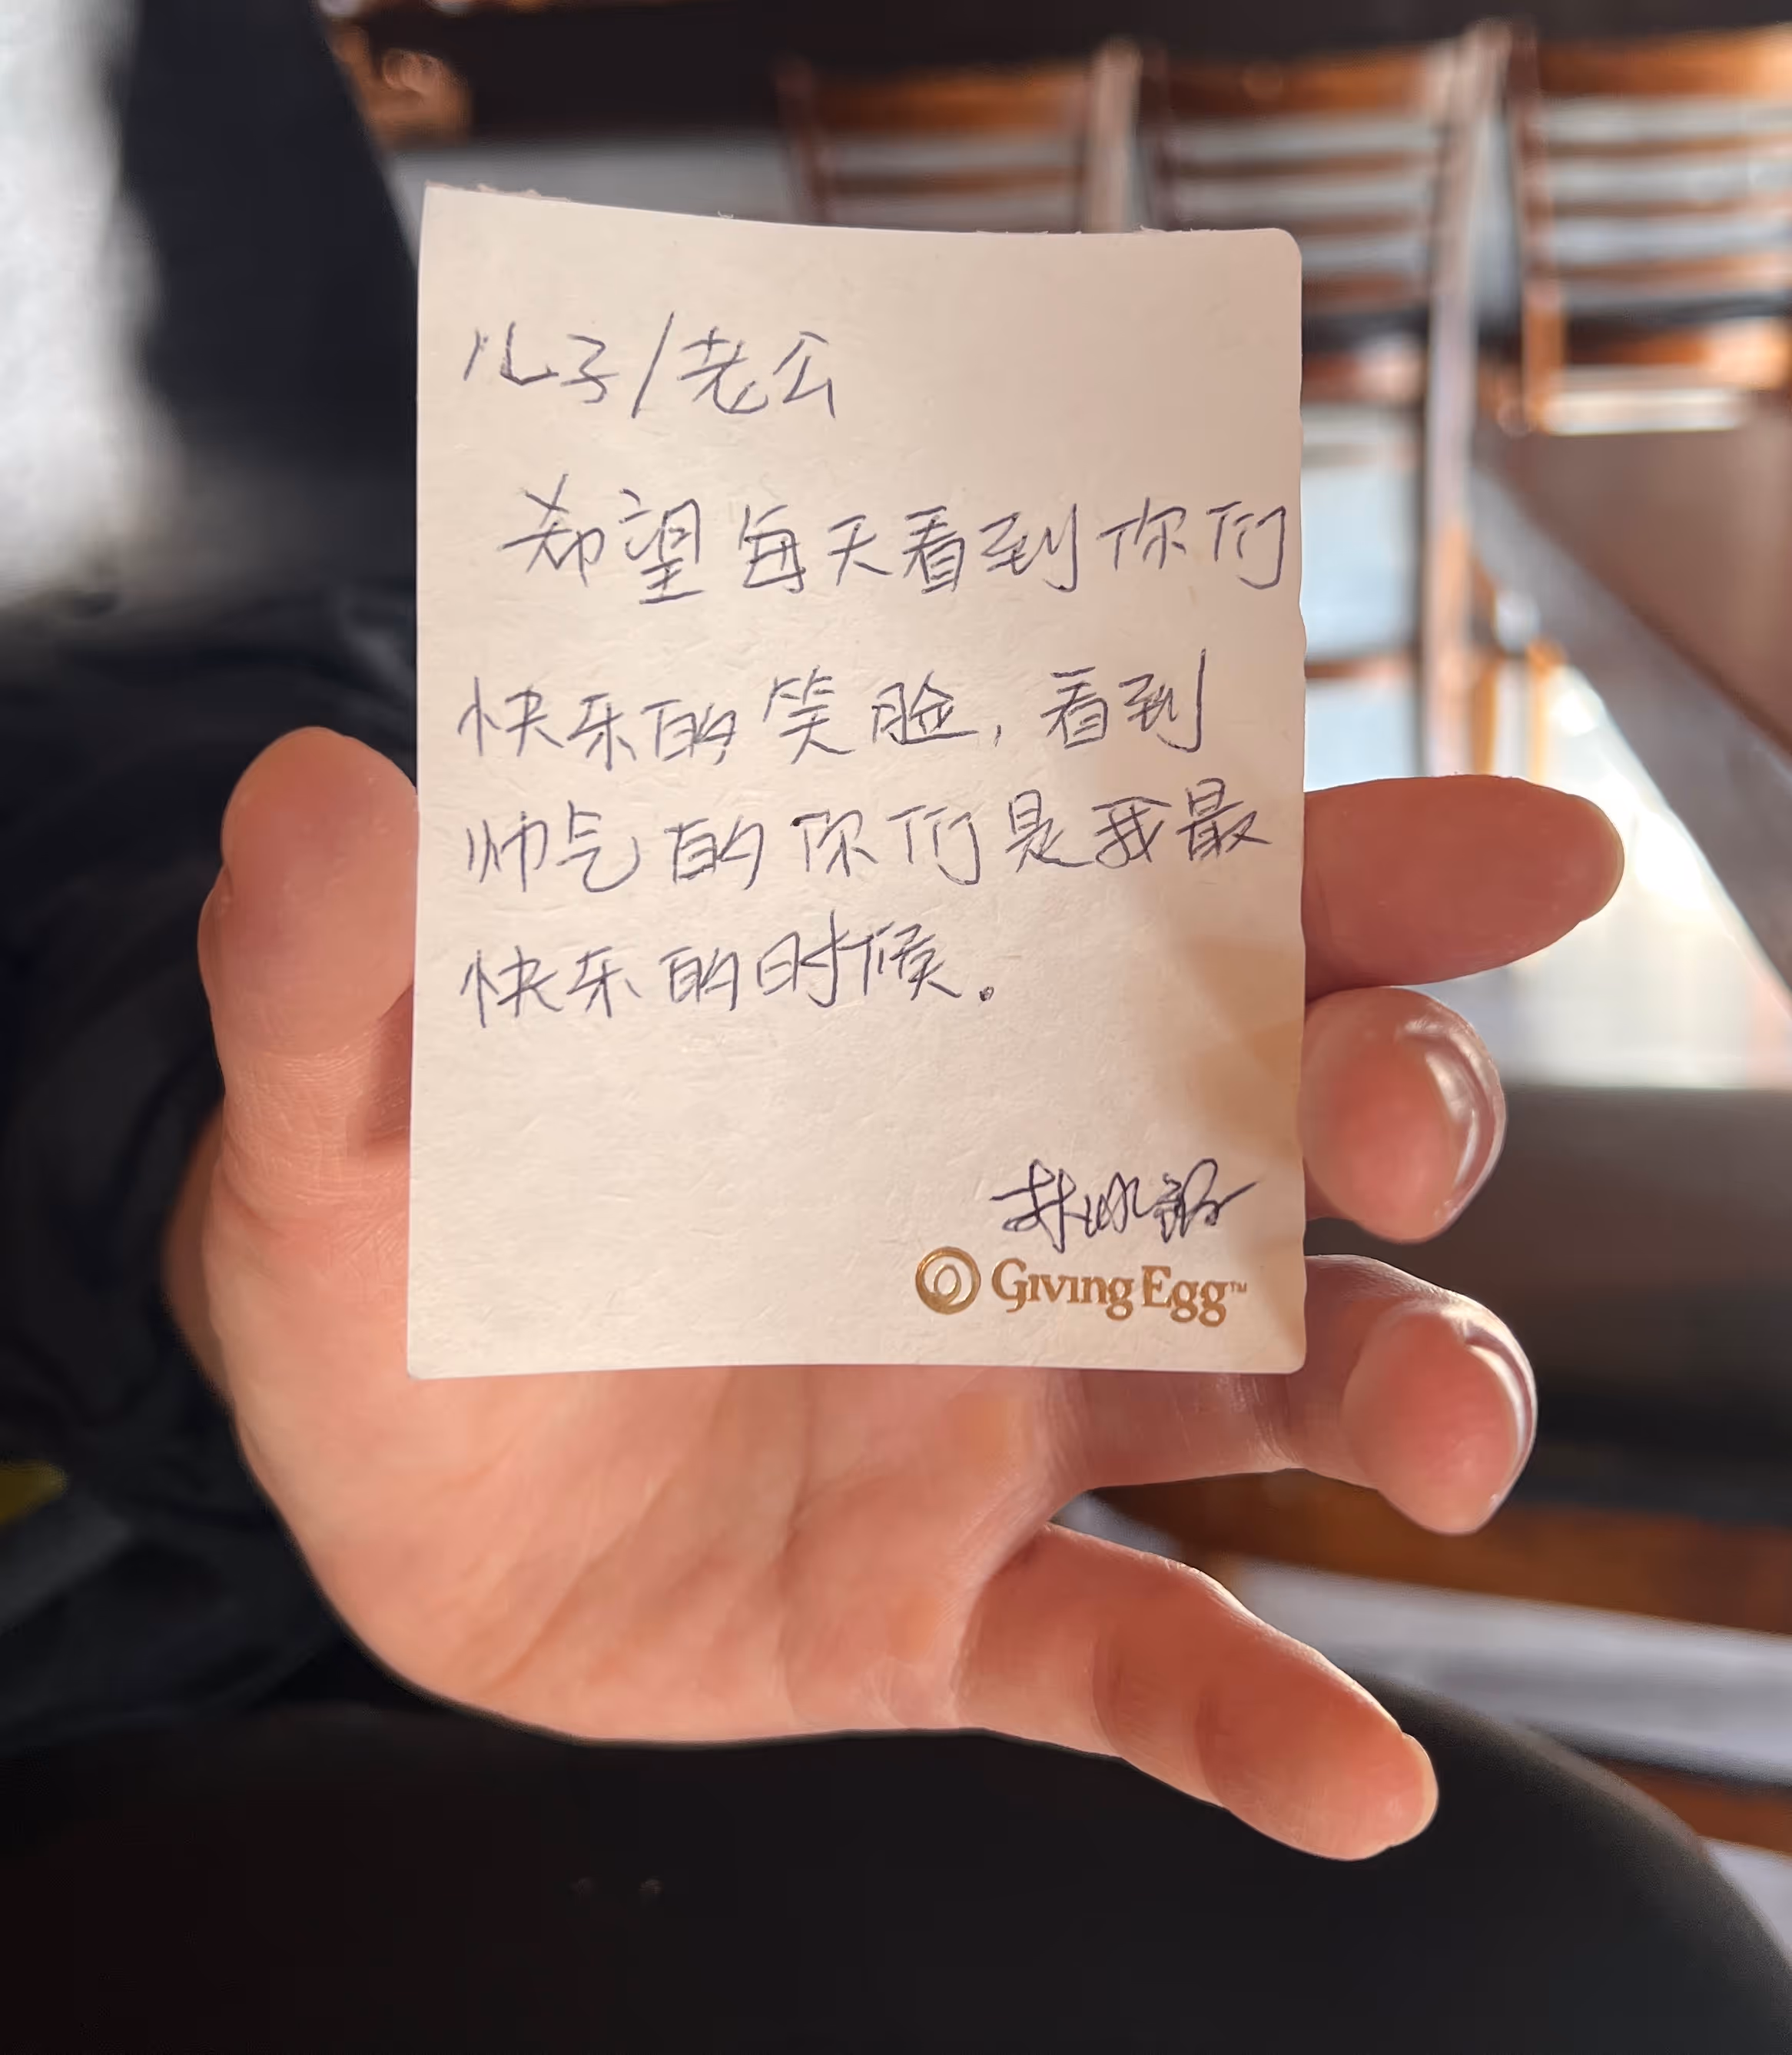 儿子/老公
希望每天看到你们
快乐的笑脸,看到
帅气的你们是我最
快乐的时候。
Giving Egg™